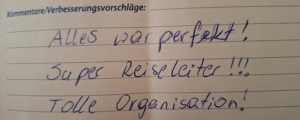 Kommentare/Verbesserungsvorschläge:
Alles war perfekt!
Super Reiseleiter!!!
Tolle Organisation!